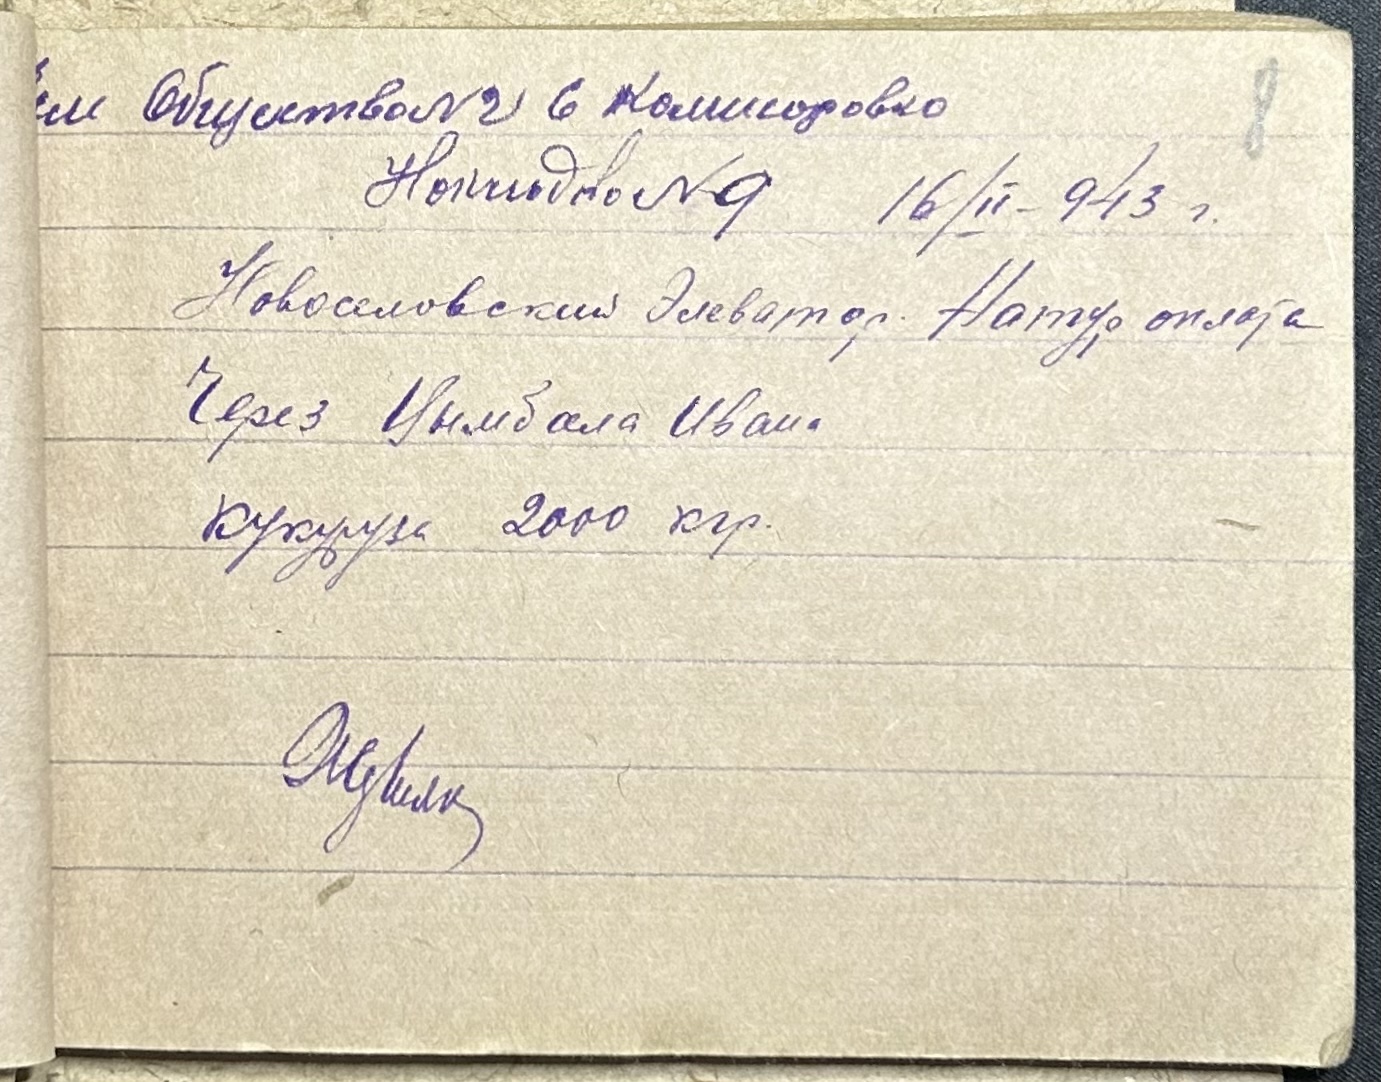 Зем Общество №2 с Комисоровка
Накладная №9 16/II-943 г.
Новоселовский Элеватор. Натур оплата
Через Цымбала Ивана
Кукуруза 2000 кгр.
8